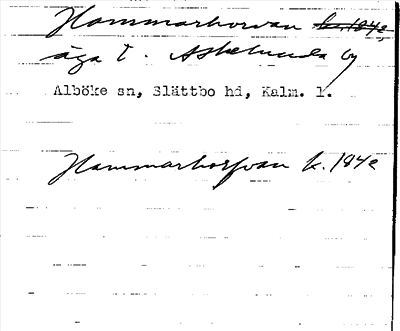 Hammarhorvan k. 184e,
äga t. Askelunda by
Alböke sn, Slättbo hd, Kalm. l.
Hammarhorfvan k. 184e